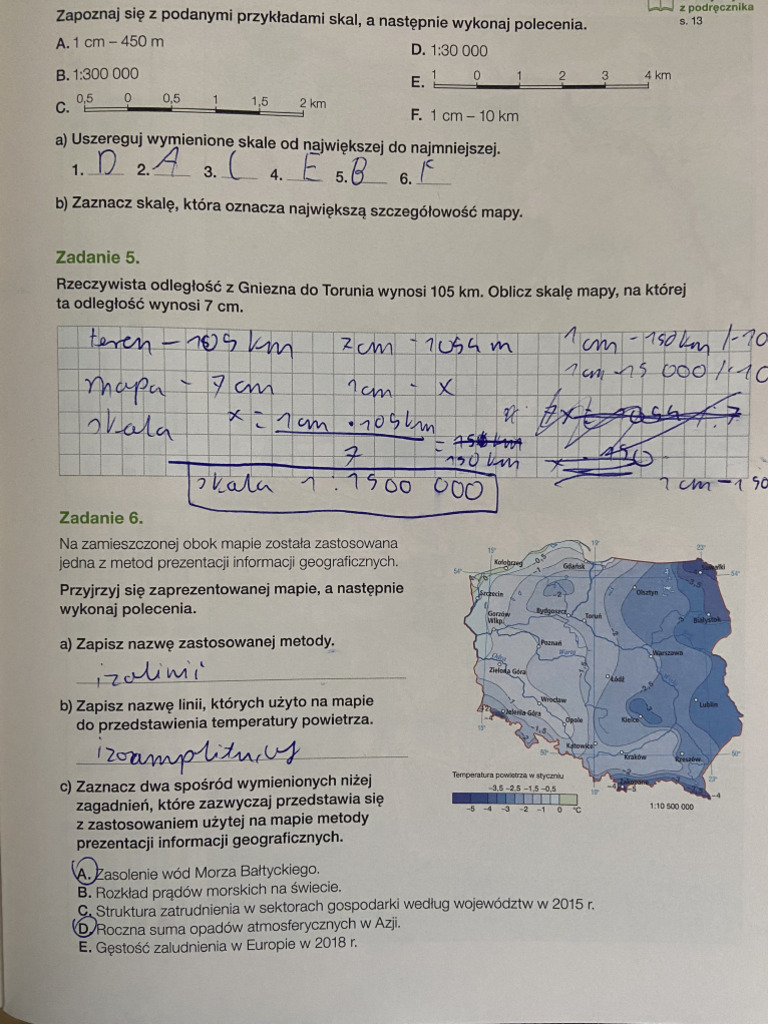 z podręcznika
s. 13
Zapoznaj się z podanymi przykładami skal, a następnie wykonaj polecenia.
A. 1 cm – 450 m
D. 1:30 000
B. 1:300 000
E. 1 0 1 2 3 4 km
C. 0,5 0 0,5 1 1,5 2 km
F. 1 cm – 10 km
a) Uszereguj wymienione skale od największej do najmniejszej.
1. D 2. A 3. C 4. E 5. B 6. F
b) Zaznacz skalę, która oznacza największą szczegółowość mapy.
Zadanie 5.
Rzeczywista odległość z Gniezna do Torunia wynosi 105 km. Oblicz skalę mapy, na której
ta odległość wynosi 7 cm.
teren – 105 km 7cm - 105 m 1 cm - 150 km
mapa - 7 cm 1cm - x 1cm - 15 000
skala x = 1cm · 105km = 150 km
7
skala 1 : 1500 000
1 cm – 150
Zadanie 6.
Na zamieszczonej obok mapie została zastosowana
jedna z metod prezentacji informacji geograficznych.
Przyjrzyj się zaprezentowanej mapie, a następnie
wykonaj polecenia.
a) Zapisz nazwę zastosowanej metody.
izolinii
b) Zapisz nazwę linii, których użyto na mapie
do przedstawienia temperatury powietrza.
izoamplitudy
c) Zaznacz dwa spośród wymienionych niżej
zagadnień, które zazwyczaj przedstawia się
z zastosowaniem użytej na mapie metody
prezentacji informacji geograficznych.
A. Zasolenie wód Morza Bałtyckiego.
B. Rozkład prądów morskich na świecie.
C. Struktura zatrudnienia w sektorach gospodarki według województw w 2015 r.
D. Roczna suma opadów atmosferycznych w Azji.
E. Gęstość zaludnienia w Europie w 2018 r.
15° 19° 23°
54° 54°
Kołobrzeg
Gdańsk
Suwałki
Szczecin
Olsztyn
Gorzów
Wlkp.
Bydgoszcz
Toruń
Białystok
Poznań
Warszawa
Zielona Góra
Łódź
Wrocław
Lublin
Jelenia Góra
Opole
Kielce
Katowice
Kraków
Rzeszów
50° 50°
Temperatura powietrza w styczniu
-3,5 -2,5 -1,5 -0,5
-5 -4 -3 -2 -1 0 °C
1:10 500 000